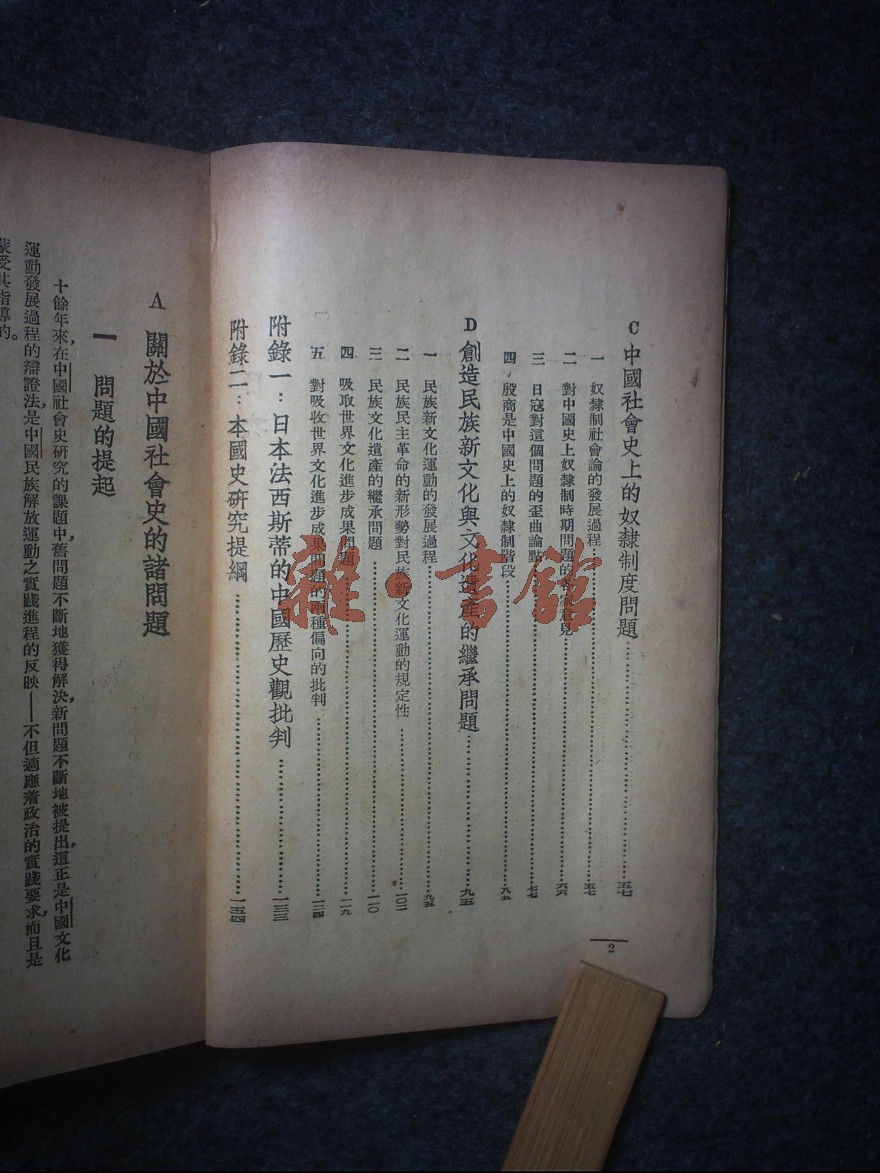 C 中國社會史上的奴隸制度問題……五七
一 奴隸制社會論的發展過程……五七
二 對中國史上奴隸制時期問題的各家意見……六六
三 日寇對這個問題的歪曲論點……七七
四 殷商是中國史上的奴隸制階段……八五
D 創造民族新文化與文化遺產的繼承問題……九五
一 民族新文化運動的發展過程……九五
二 民族民主革命的新形勢對民族新文化運動的規定性……一〇二
三 民族文化遺產的繼承問題……一一〇
四 吸取世界文化進步成果問題……一一九
五 對吸收世界文化進步成果問題的兩種偏向的批判……一二四
附錄一:日本法西斯蒂的中國歷史觀批判……一三三
附錄二:本國史研究提綱……一五四
2
A 關於中國社會史的諸問題
一 問題的提起
十餘年來,在中國社會史研究的課題中,舊問題不斷地獲得解決,新問題不斷地被提出,這正是中國文化
運動發展過程的辯證法,是中國民族解放運動之實踐進程的反映——不但適應着政治的實踐要求,而且是
蒙受其指導的。
雜·書館